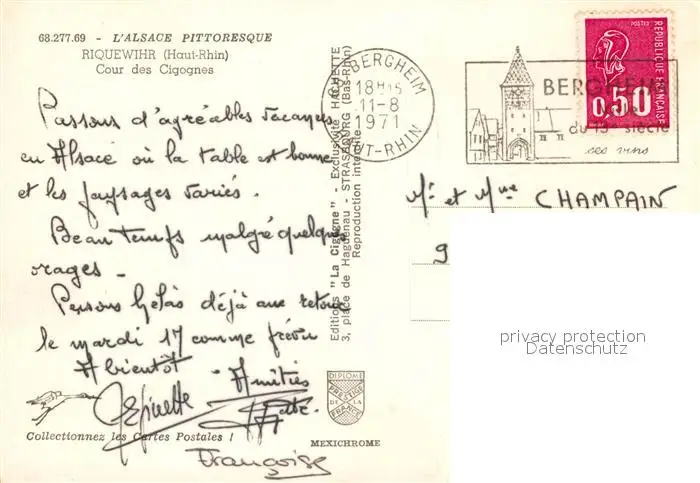 68.277.69 - L'ALSACE PITTORESQUE
RIQUEWIHR (Haut-Rhin)
Cour des Cigognes
Passons d'agréables vacances
en Alsace où la table est bonne
et les paysages variés.
Beau temps malgré quelques
orages -
Pensons hélas déjà au retour
le mardi 17 comme prévu
A bientôt - Amitiés
Françoise
Collectionnez les Cartes Postales !
MEXICHROME
DIPLOME
PRESTIGE
DE LA
FRANCE
Editions "La Cigogne" - Exclusivité HACHETTE
3, place de Haguenau - STRASBOURG (Bas-Rhin)
Reproduction interdite
BERGHEIM
18H15
11-8
1971
HAUT-RHIN
BERGHEIM
du 13e siècle
ses vins
POSTES
REPUBLIQUE FRANCAISE
0,50
Mr et Mme CHAMPAIN
9
privacy protection
Datenschutz